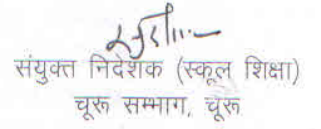 संयुक्त निदेशक (स्कूल शिक्षा)
चूरू सम्भाग, चूरू